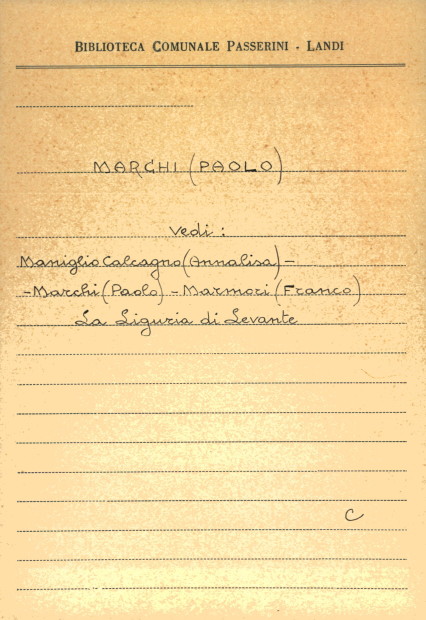 BIBLIOTECA COMUNALE PASSERINI - LANDI
MARCHI (PAOLO)
Vedi :
Maniglio Calcagno (Annalisa) -
- Marchi (Paolo) - Marmori (Franco)
La Liguria di Levante
C